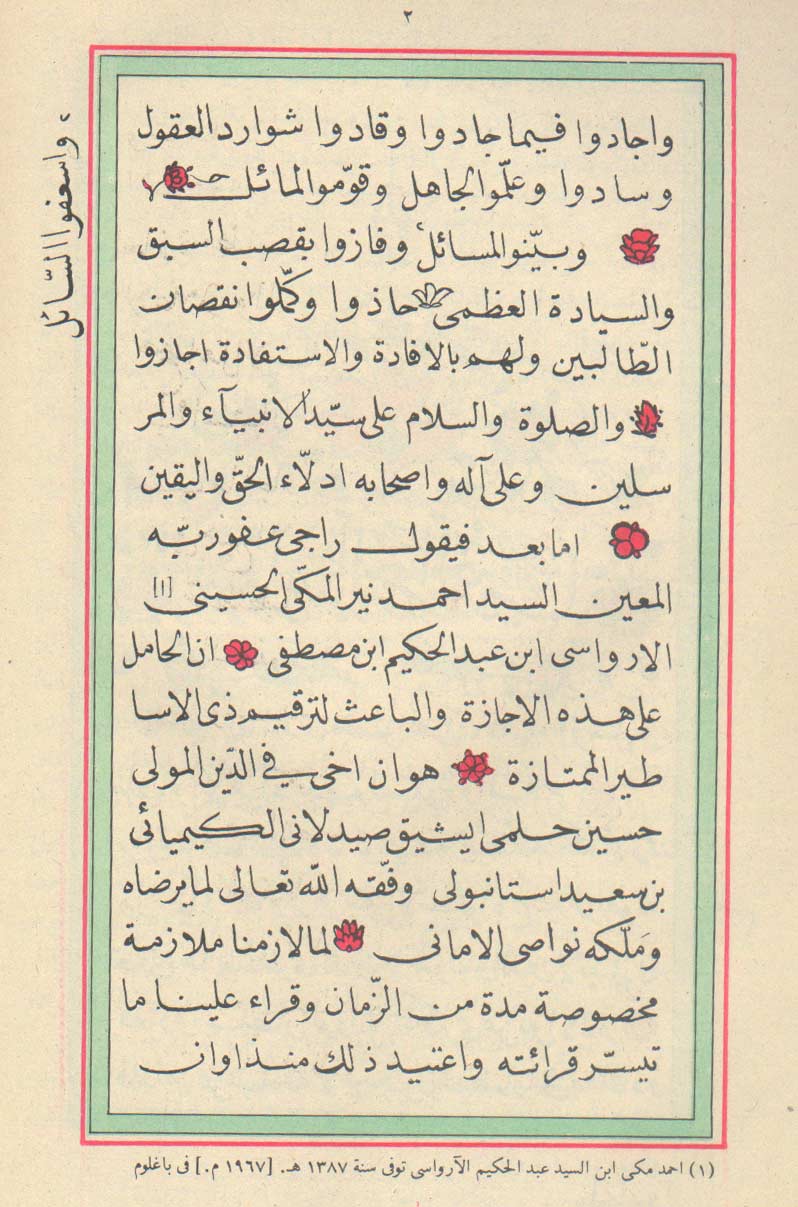 ٢
واجادوا فيما جادوا وقادوا شوارد العقول
وسادوا وعلّموا الجاهل وقوّموا المائل
وبيّنوالمسائل وفازوا بقصب السبق
والسيادة العظمى حاذوا وكمّلوا نقصان
الطّالبين ولهم بالافادة والاستفادة اجازوا
والصلوة والسلام على سيّد الانبيآء والمر
سلين وعلى آله واصحابه ادلّاء الحقّ واليقين
اما بعد فيقول راجى عفو ربّه
المعين السيد احمد نير المكّى الحسينى [١]
الارواسى ابن عبد الحكيم ابن مصطفى ان الحامل
على هذه الاجازة والباعث لترقيم ذى الاسا
طير الممتازة هو ان اخى فى الدّين المولى
حسين حلمى ايشيق صيدلانى الكيميائى
بن سعيد استانبولى وفّقه الله تعالى لما يرضاه
ومَلّكه نواصى الامانى لما لازمنا ملازمة
مخصوصة مدة من الزّمان وقراء علينا ما
تيسّر قرائته واعتيد ذلك منذ اوان
واسعفوا السّائل
(١) احمد مكى ابن السيد عبد الحكيم الآرواسى توفى سنة ١٣٨٧ هـ. [١٩٦٧ م.] فى باغلوم